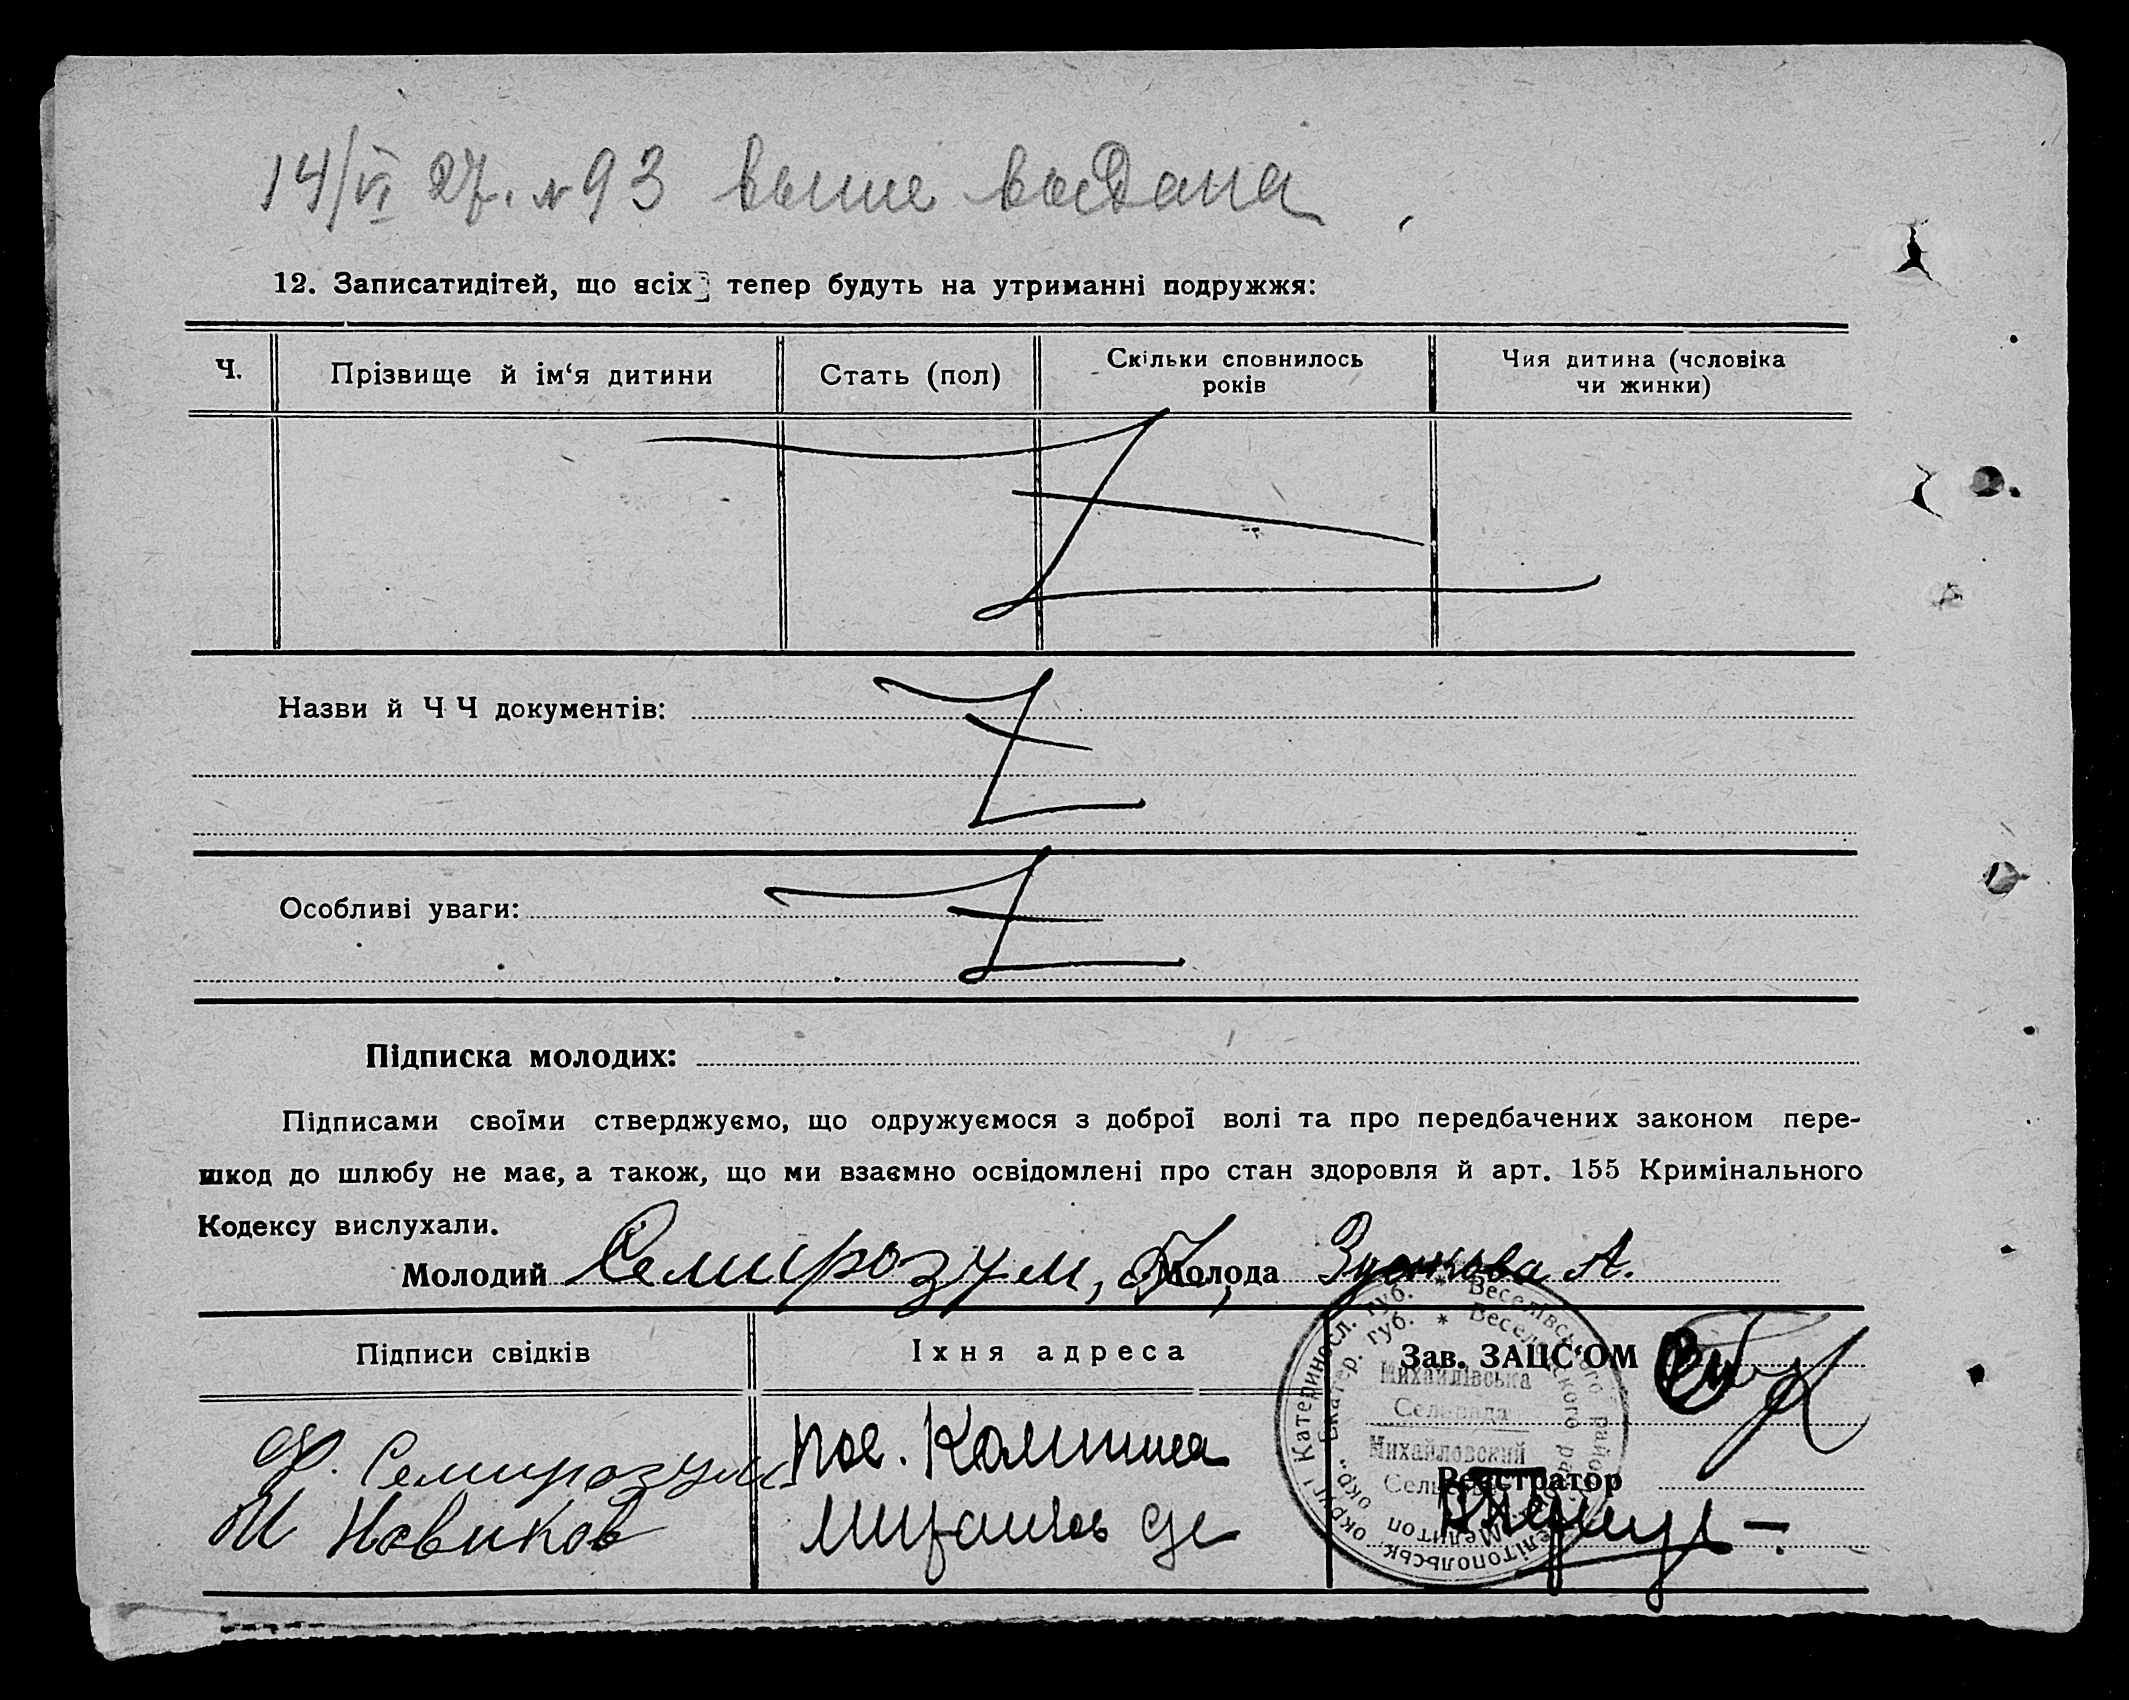 14/VI 27. № 93 выше выдана
12. Записатидітей, що всіх тепер будуть на утриманні подружжя:
Ч.
Прізвище й ім‘я дитини
Стать (пол)
Скільки сповнилось
років
Чия дитина (чоловіка
чи жинки)
Назви й Ч Ч документів:
Особливі уваги:
Підписка молодих:
Підписами своїми стверджуємо, що одружуємося з доброї волі та про передбачених законом пере-
шкод до шлюбу не має, а також, що ми взаємно освідомлені про стан здоровля й арт. 155 Кримінального
Кодексу вислухали.
Молодий Семирозум, Молода А.
Підписи свідків
Їхня адреса
Зав. ЗАЦС‘ОМ
Ф. Семирозум
пос. Калинина
И Новиков
Реєстратор
Катериносл. губ. * Веселівського район
Екатер. губ. * Веселовского
Михайлівська
Сельрада
Михайловский
Мелітопольськ. округ
Мелитоп окр.